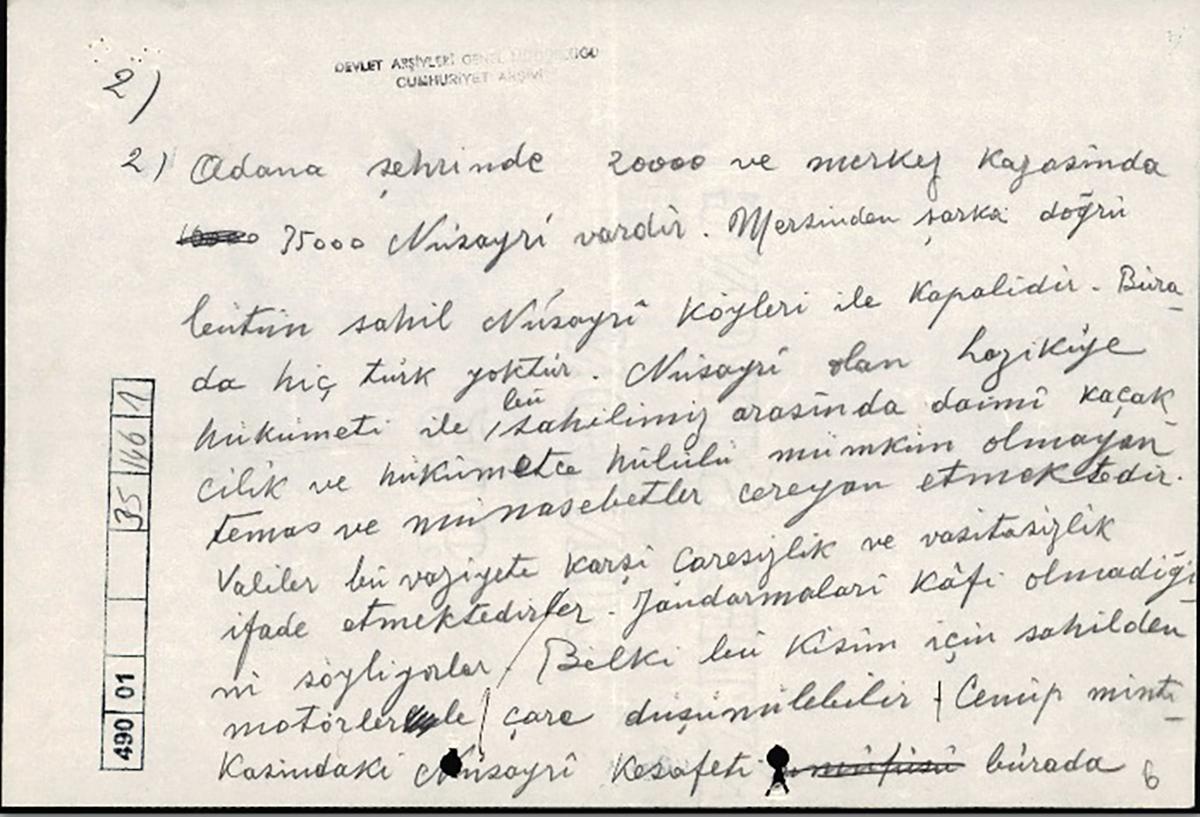 DEVLET ARŞİVLERİ GENEL MÜDÜRLÜĞÜ
CUMHURİYET ARŞİVİ
2)
2) Adana şehrinde 20000 ve merkez kazasinda
75000 Nüsayri vardir. Mersinden şarka doğrü
bütün sahil Nüsayrî köyleri ile kapalidir. Büra-
da hiç türk yoktür. Nüsayrî olan lazikiye
bü
hükümeti ile sahilimiz arasinda daimî kaçak
cilik ve hükümetce hülülü mümkün olmayan
temas ve münasebetler cereyan etmektedir.
Valiler bü vaziyete karşi çaresizlik ve vasitasizlik
ifade etmektedirler. Jandarmalari kâfi olmadiği
ni söyliyorlar. Belki bü kisim için sahilden
motörlerle çare düşünülebilir. Cenüp minta-
kasindaki Nüsayrî kesafeti nüfüsü bürada
6
490 01 35 146 1